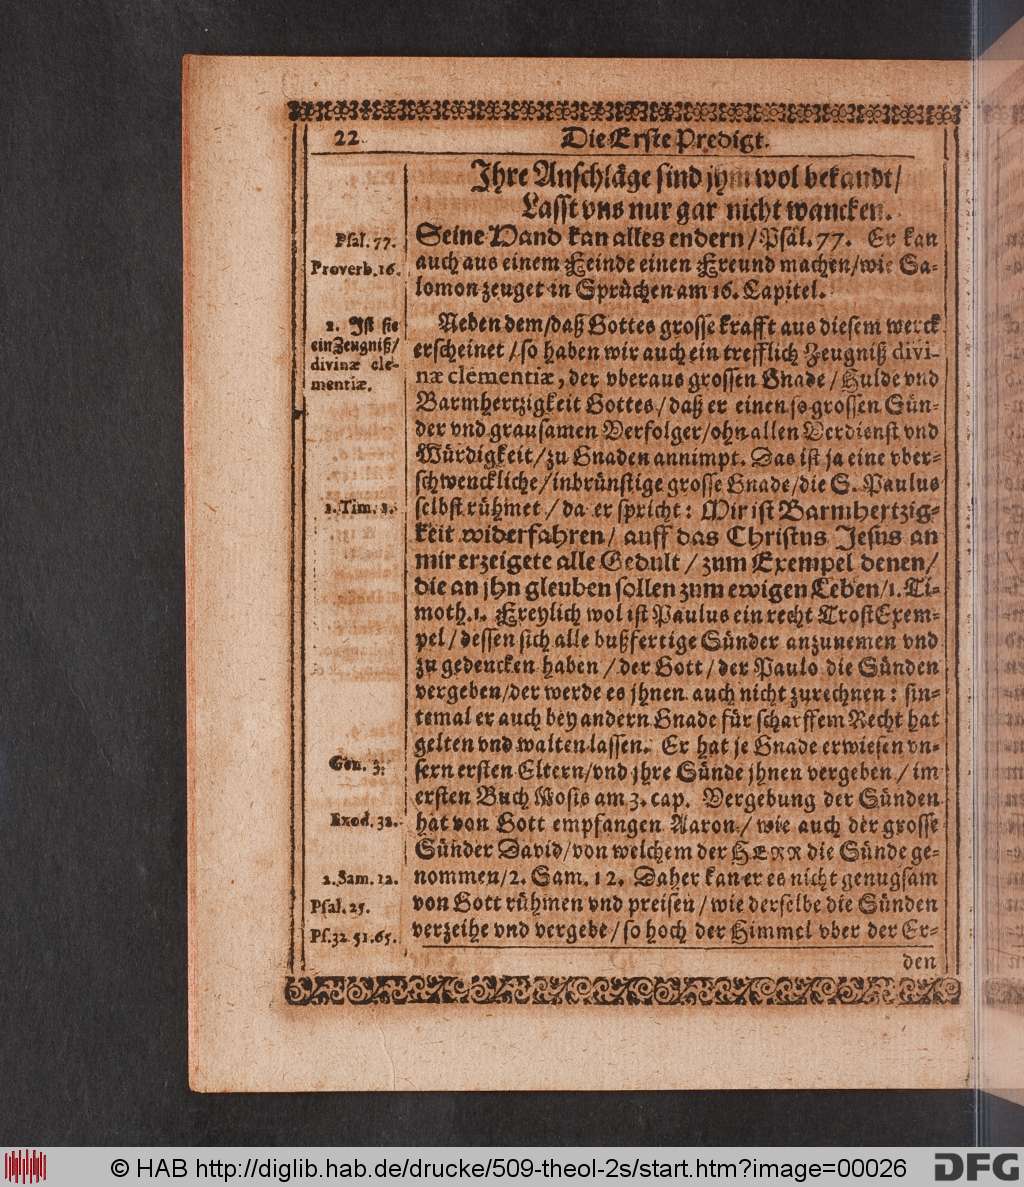 22 Die Erste Predigt.
Ihre Anschläge sind jhm wol bekandt/
Lasst vns nur gar nicht wancken.
Psal. 77.
Seine Hand kan alles endern/Psal. 77. Er kan
Proverb. 16.
auch aus einem Feinde einen Freund machen/wie Sa-
lomon zeuget in Sprüchen am 16. Capitel.
2. Ist sie
ein Zeugniß/
divinæ cle-
mentiæ.
Neben dem/daß Gottes grosse krafft aus diesem werck
erscheinet/so haben wir auch ein trefflich Zeugniß divi-
næ clementiæ, der vberaus grossen Gnade/Hulde vnd
Barmhertzigkeit Gottes/daß er einen so grossen Sün-
der vnd grausamen Verfolger/ohn allen Verdienst vnd
Würdigkeit/zu Gnaden annimpt. Das ist ja eine vber-
schwenckliche/inbrünstige grosse Gnade/die S. Paulus
1. Tim. 1.
selbst rühmet/da er spricht: Mir ist Barmhertzig-
keit widerfahren/ auff das Christus Jesus an
mir erzeigete alle Gedult/zum Exempel denen/
die an jhn gleuben sollen zum ewigen Leben/1. Ti-
moth. 1. Freylich wol ist Paulus ein recht TrostExem-
pel/dessen sich alle bußfertige Sünder anzunemen vnd
zu gedencken haben/der Gott/der Paulo die Sünden
vergeben/der werde es jhnen auch nicht zurechnen: sin-
temal er auch bey andern Gnade für scharffem Recht hat
gelten vnd walten lassen. Er hat je Gnade erwiesen vn-
Gen. 3.
sern ersten Eltern/vnd jhre Sünde jhnen vergeben/im
ersten Buch Mosis am 3. cap. Vergebung der Sünden
Exod. 32.
hat von Gott empfangen Aaron/wie auch der grosse
Sünder David/von welchem der HERR die Sünde ge-
2. Sam. 12.
nommen/2. Sam. 12. Daher kan er es nicht genugsam
Psal. 25.
von Gott rühmen vnd preisen/wie derselbe die Sünden
Ps. 32. 51. 65.
verzeihe vnd vergebe/so hoch der Himmel vber der Er-
den
© HAB http://diglib.hab.de/drucke/509-theol-2s/start.htm?image=00026 DFG